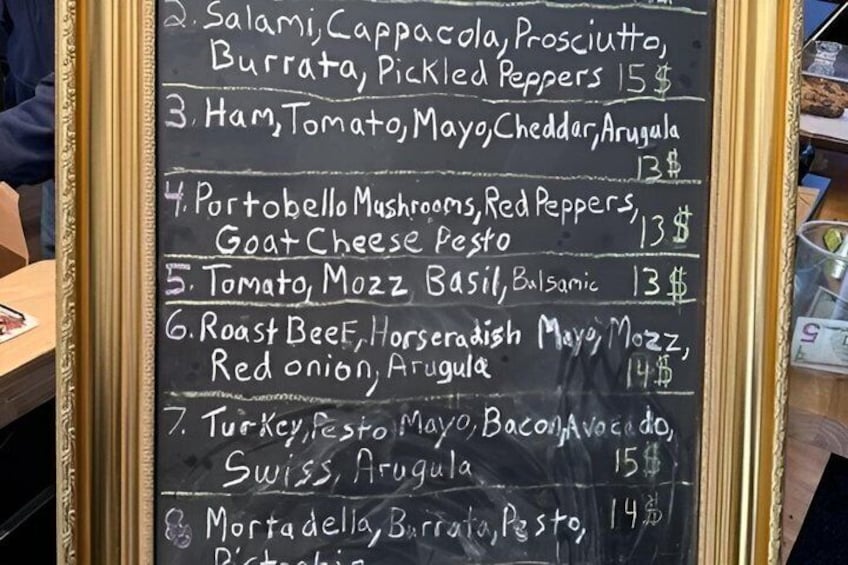 2. Salami, Cappacola, Prosciutto,
Burrata, Pickled Peppers 15$
3. Ham, Tomato, Mayo, Cheddar, Arugula
13$
4. Portobello Mushrooms, Red Peppers,
Goat Cheese Pesto 13$
5. Tomato, Mozz Basil, Bulsamic 13$
6. Roast Beef, Horseradish Mayo, Mozz,
Red onion, Arugula 14$
7. Turkey, Pesto Mayo, Bacon, Avocado,
Swiss, Arugula 15$
8. Mortadella, Burrata, Pesto, 14$
5